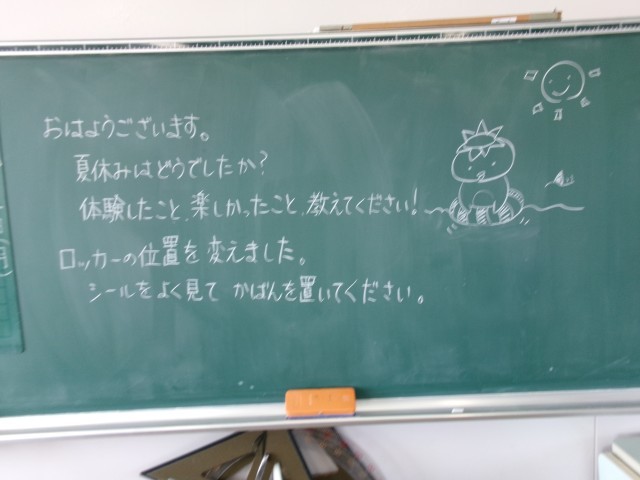 おはようございます。
夏休みはどうでしたか?
体験したこと、楽しかったこと、教えてください!
ロッカーの位置を変えました。
シールをよく見て かばんを置いてください。